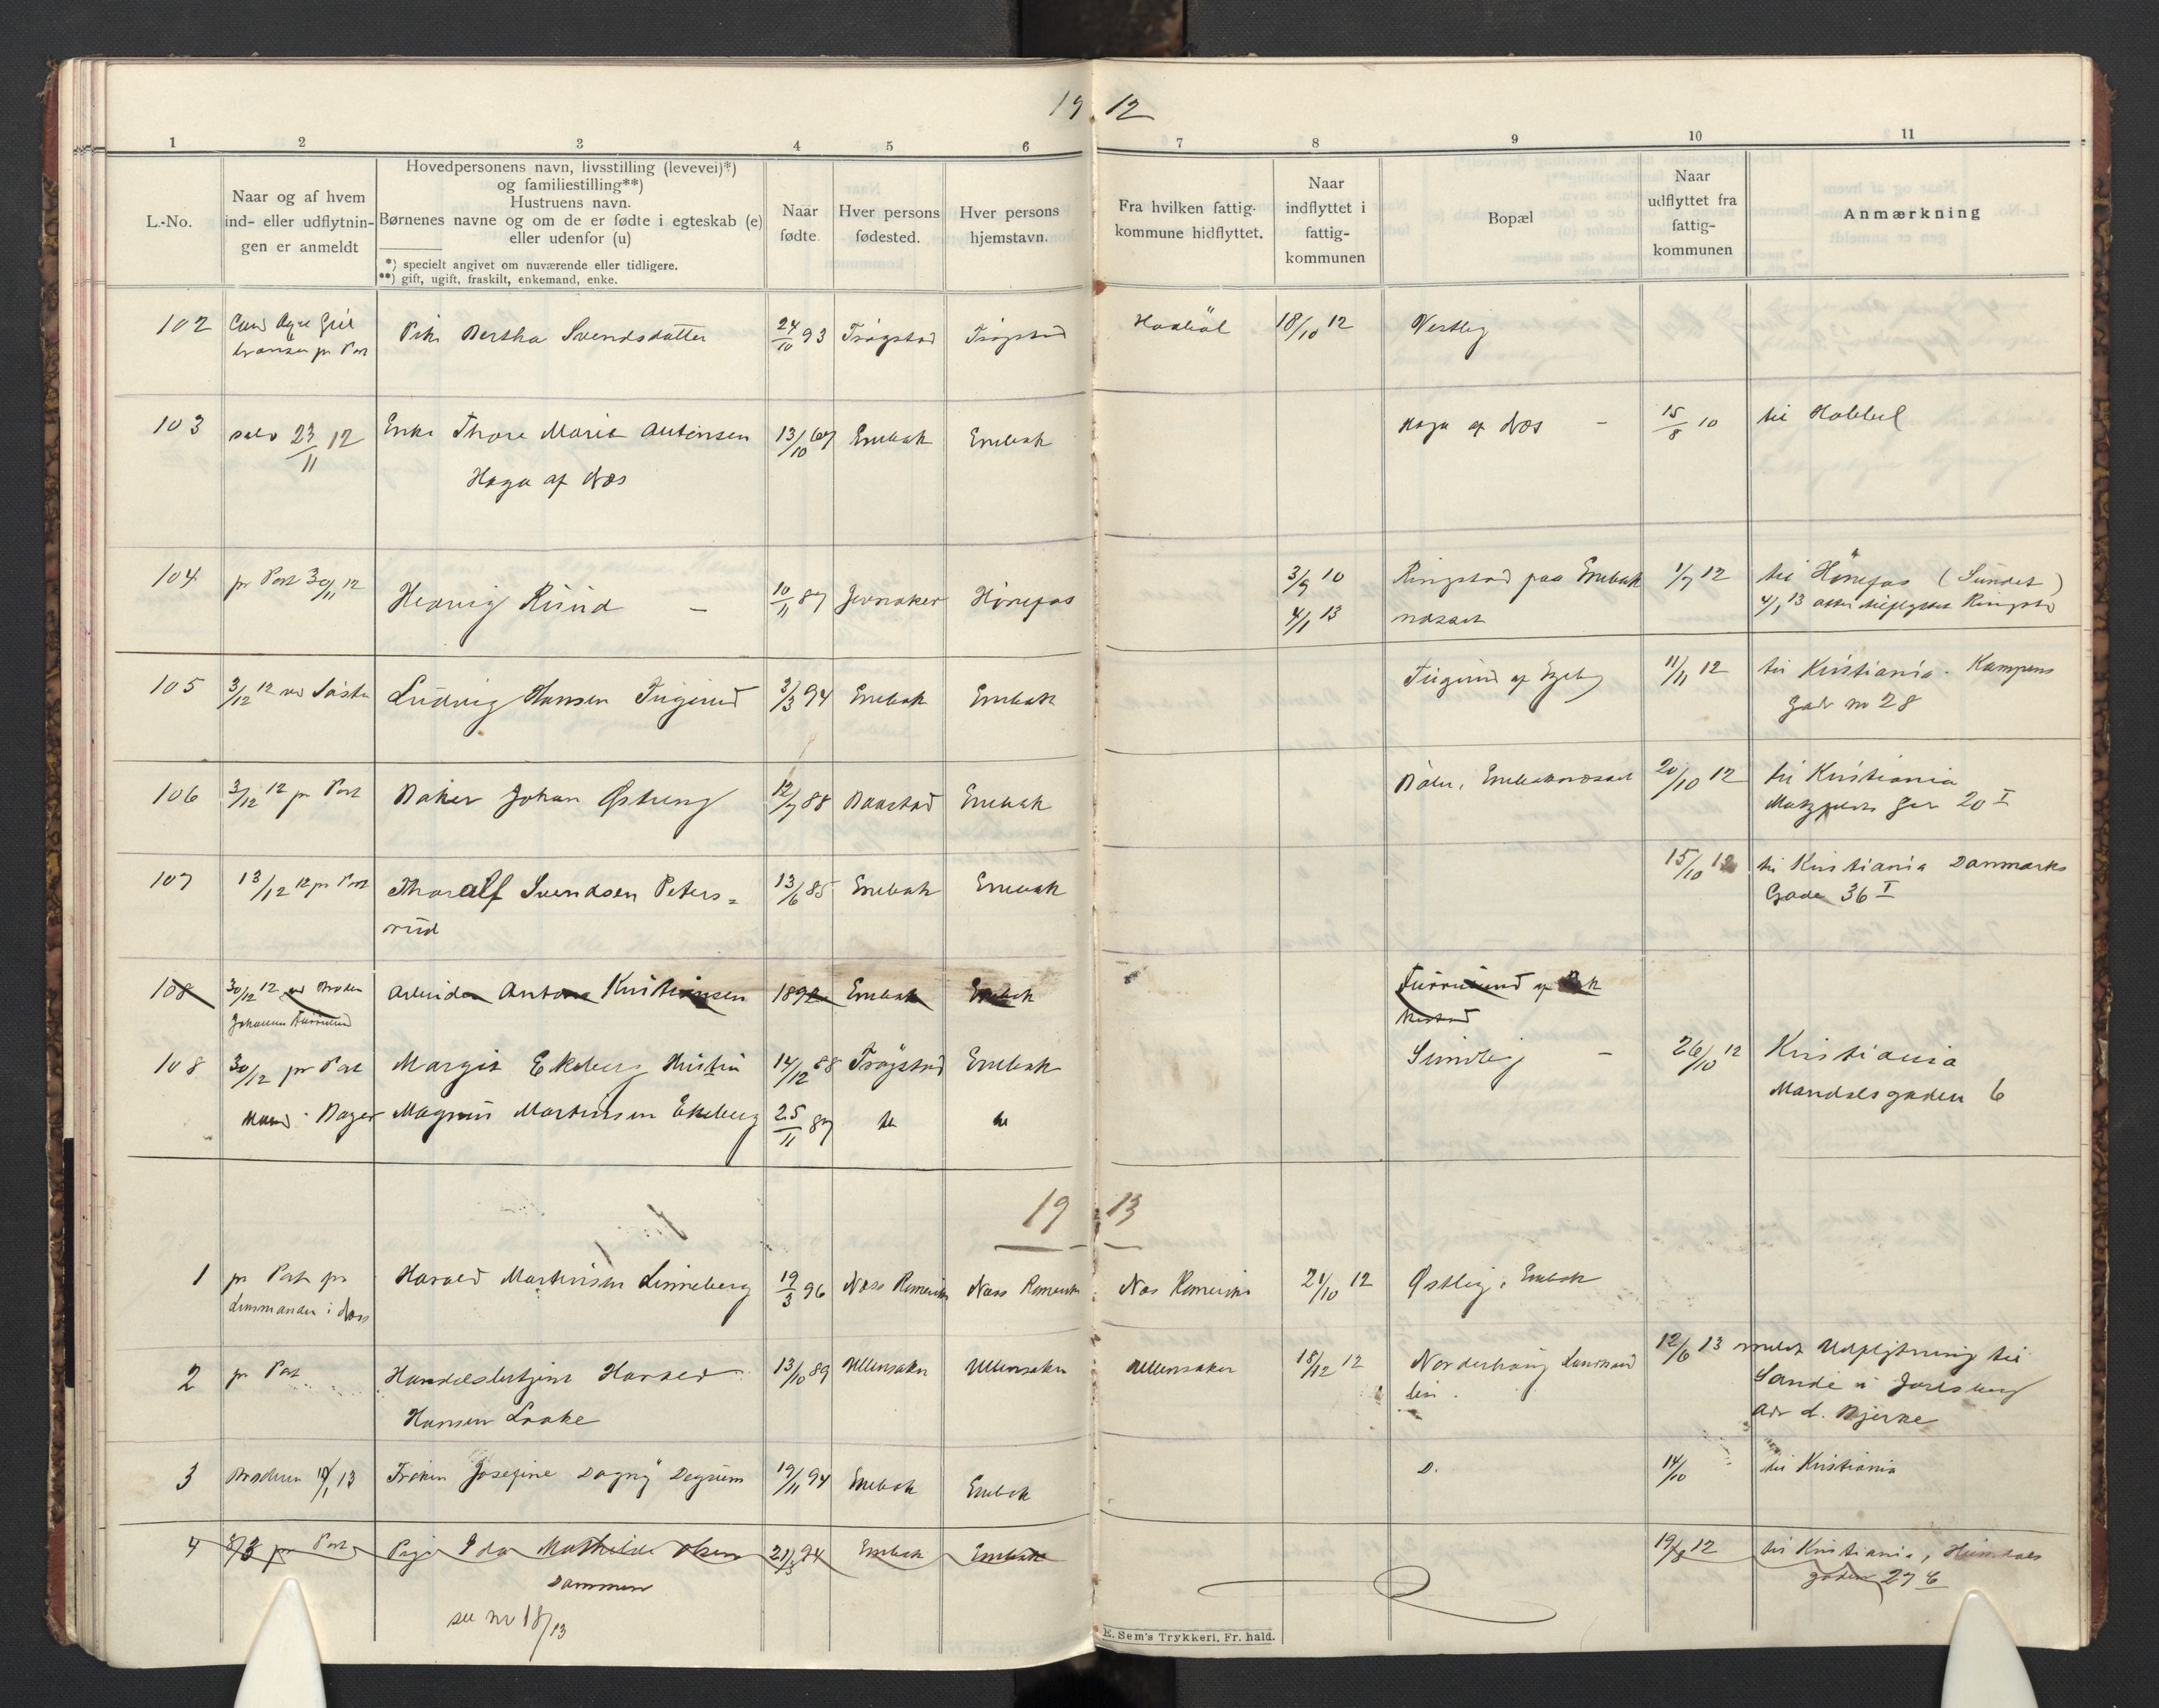 19 12
1 2 3 4 5 6 7 8 9 10 11
L.-No.
Naar og af hvem
ind- eller udflytnin-
gen er anmeldt
Hovedpersonens navn, livsstilling (levevei)*)
og familiestilling**)
Hustruens navn.
Børnenes navne og om de er fødte i egteskab (e)
eller udenfor (u)
*) specielt angivet om nuværende eller tidligere.
**) gift, ugift, fraskilt, enkemand, enke.
Naar
fødte.
Hver persons
fødested.
Hver persons
hjemstavn.
Fra hvilken fattig-
kommune hidflyttet.
Naar
indflyttet i
fattig-
kommunen
Bopæl
Naar
udflyttet fra
fattig-
kommunen
Anmærkning
102 pr Post Pike Bertha Svendsdatter 24/10 93 Trøgstad Trøgstad Hobøl 18/10 12 Vestby
103 selv 23/11 12 Enke Thore Marie Antonsen 13/10 67 Enebak Enebak Haga af Næs - 15/8 10 til Hobbel
Haga af Næs
104 pr Post 30/11 12 Hedvig Ruud - 10/11 87 Jevnaker Hönefos 3/9 10 Ringstad paa Enebak 1/7 12 til Hönefos (Sundet)
4/1 13 næsset 4/1 13 atter tilflyttet Ringstad
105 3/12 12 ved Søster Ludvig Hansen Tugerud 3/3 94 Enebak Enebak Tugerud af 11/11 12 til Kristiania. Kampens
Gade no 28
106 3/12 12 pr Post Baker Johan Østreng 12/7 88 Baastad Enebak Enebaknæsset 20/10 12 til Kristiania
20 I
107 13/12 12 pr Post Thoralf Svendsen Peters=
rud 13/6 85 Enebak Enebak 15/10 12 til Kristiania Danmarks
Gade 36 I
108 30/12 12 ved Broder Arbeider Anton Kristiansen 1892 Enebak Enebak
Johannes
108 30/12 pr Post Margit Ekeberg Hustru 14/12 88 Trøgstad Enebak Sundby - 26/10 12 Kristiania
Mand. Bager Magnus Martinsen Ekeberg 25/11 87 do do Mandalsgaden 6
19 13
1 pr Post fra Harald Martinsen Linneberg 19/3 96 Næss Romerike Næss Romerike Næs Romerike 21/10 12 Østby, Enebak
Lensmanden i Næss
2 pr Post Handelsbetjent Harald 13/10 89 Ullensaker Ullensaker Ullensaker 18/12 12 12/6 13 meldt Udflytning til
Hansen Laake Sande i Jarlsberg
adr d. Bjerke
3 Broderen 13 Frøken Josefine Dagny Degrum 19/11 94 Enebak Enebak D. 14/10 til Kristiania
4 8/3 pr Post Pige Ida Mathilde Olsen 21/3 94 Enebak Enebak 19/8 12 til Kristiania,
Dammen gaden 27
see nr 18/13
E. Sem's Trykkeri, Fr. hald.